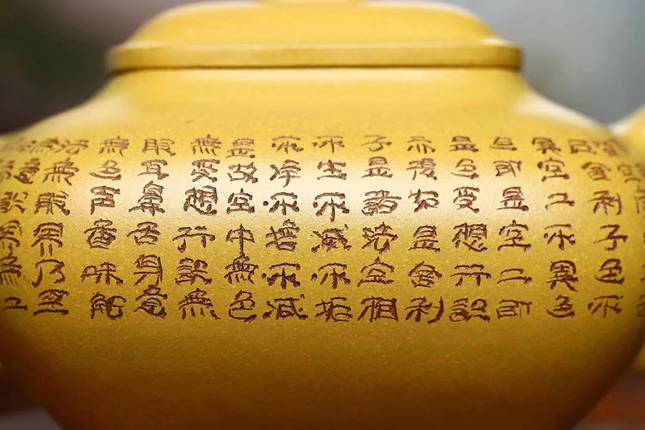 厄舍利子色不
異空二不異色
色即是空二即
是色受想行識
亦復如是舍利
子是諸法空相
不生不滅不垢
不淨不增不減
是故空中無色
無受想行識無
眼耳鼻舌身意
無色声香味觸
法無眼界乃至